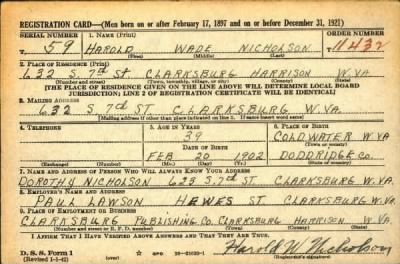 REGISTRATION CARD—(Men born on or after February 17, 1897 and on or before December 31, 1921)
SERIAL NUMBER 1. NAME (Print) ORDER NUMBER
T 59 HAROLD WADE NICHOLSON 11432
(First) (Middle) (Last)
2. PLACE OF RESIDENCE (Print)
632 S. 7th ST CLARKSBURG HARRISON W. VA
(Number and street) (Town, township, village, or city) (County) (State)
[THE PLACE OF RESIDENCE GIVEN ON THE LINE ABOVE WILL DETERMINE LOCAL BOARD
JURISDICTION; LINE 2 OF REGISTRATION CERTIFICATE WILL BE IDENTICAL]
3. MAILING ADDRESS
632 S. 7th ST. CLARKSBURG W. VA.
[Mailing address if other than place indicated on line 2. If same insert word same]
4. TELEPHONE 5. AGE IN YEARS 6. PLACE OF BIRTH
39 COLDWATER W. VA
DATE OF BIRTH (Town or county)
FEB 20 1902 DODDRIDGE CO.
(Exchange) (Number) (Mo.) (Day) (Yr.) (State or country)
7. NAME AND ADDRESS OF PERSON WHO WILL ALWAYS KNOW YOUR ADDRESS
DOROTHY NICHOLSON S. 7th ST CLARKSBURG W. VA.
8. EMPLOYER'S NAME AND ADDRESS
PAUL LAWSON HEWES ST CLARKSBURG W. VA.
9. PLACE OF EMPLOYMENT OR BUSINESS
CLARKSBURG PUBLISHING CO. CLARKSBURG HARRISON W. VA
(Number and street or R. F. D. number) (Town) (County) (State)
I AFFIRM THAT I HAVE VERIFIED ABOVE ANSWERS AND THAT THEY ARE TRUE.
D. S. S. Form 1
(Revised 1-1-42) (over) Harold W. Nicholson
(Registrant's signature)